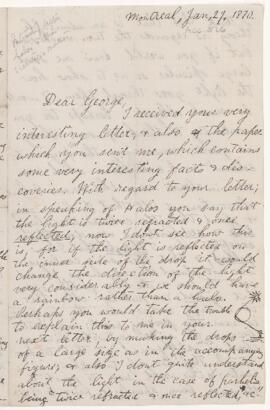 Montreal, Jan, 27, 1870.
Dear George,
I received your very
interesting letter, & also the paper
which you sent me, which contains
some very interesting facts & dis-
coveries. With regard to your letter;
in speaking of Halos you say that
the light is twice refracted & once
reflected; now I dont see how this
is, for if the light is reflected on
the inner side of the drop it would
change the direction of the light
very considerably & we should have
a rainbow rather than a halo.
Perhaps you would take the trouble
to explain this to me in your
next letter, by making the drops
of a large size as in the accompanying
figure; & also I dont quite understand
about the light in the case of parhelia
being "twice refracted & once reflected, &c"